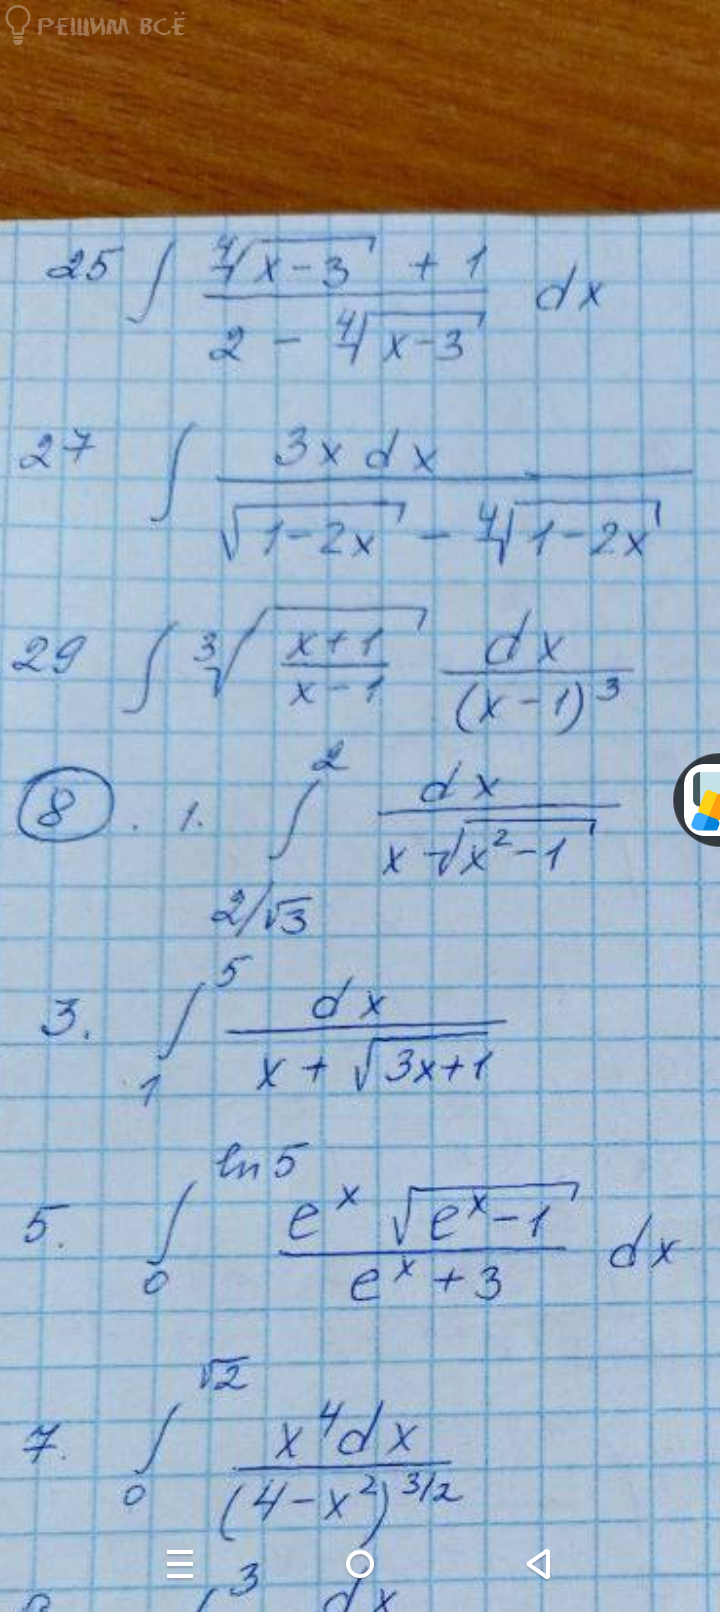 РЕШИМ ВСЁ
25 ∫ (∜(x-3) + 1)/(2 - ∜(x-3)) dx
27 ∫ 3x dx/(√(1-2x) - ∜(1-2x))
29 ∫ ∛((x+1)/(x-1)) dx/(x-1)³
8. 1. ∫_{2/√3}^{2} dx/(x√(x²-1))
3. ∫_{1}^{5} dx/(x+√(3x+1))
5. ∫_{0}^{ln 5} (eˣ √(eˣ-1))/(eˣ+3) dx
7. ∫_{0}^{√2} x⁴dx/(4-x²)^{3/2}
3 dx